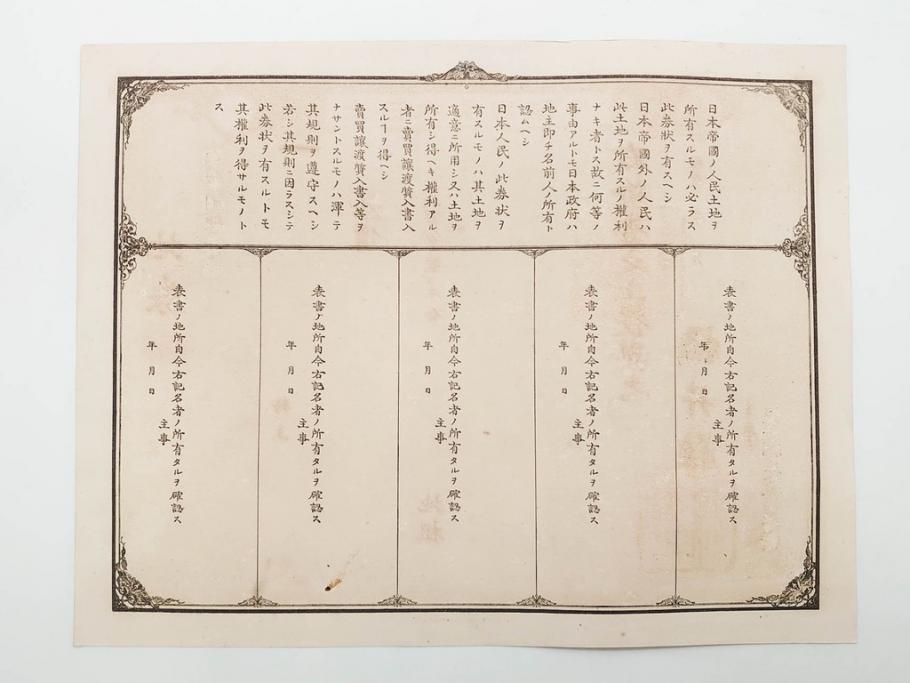 日本帝國ノ人民土地ヲ
所有スルモノハ必ラス
此券狀ヲ有スヘシ
日本帝國外ノ人民ハ
此土地ヲ所有スルノ權利
ナキ者トス故ニ何等ノ
事由アルトモ日本政府ハ
地主即チ名前人ノ所有ト
認ムヘシ
日本人民ノ此券狀ヲ
有スルモノハ其土地ヲ
適意ニ所用シ又ハ土地ヲ
所有シ得ヘキ權利アル
者ニ賣買讓渡質入書入
スルヿヲ得ヘシ
賣買讓渡質入書入等ヲ
ナサントスルモノハ渾テ
其規則ヲ遵守スヘシ
若シ其規則ニ因ラスシテ
此券狀ヲ有スルトモ
其權利ヲ得サルモノト
ス
表書ノ地所自今右記名者ノ所有タルヲ確認ス
主事
年月日
表書ノ地所自今右記名者ノ所有タルヲ確認ス
主事
年月日
表書ノ地所自今右記名者ノ所有タルヲ確認ス
主事
年月日
表書ノ地所自今右記名者ノ所有タルヲ確認ス
主事
年月日
表書ノ地所自今右記名者ノ所有タルヲ確認ス
主事
年月日
地租